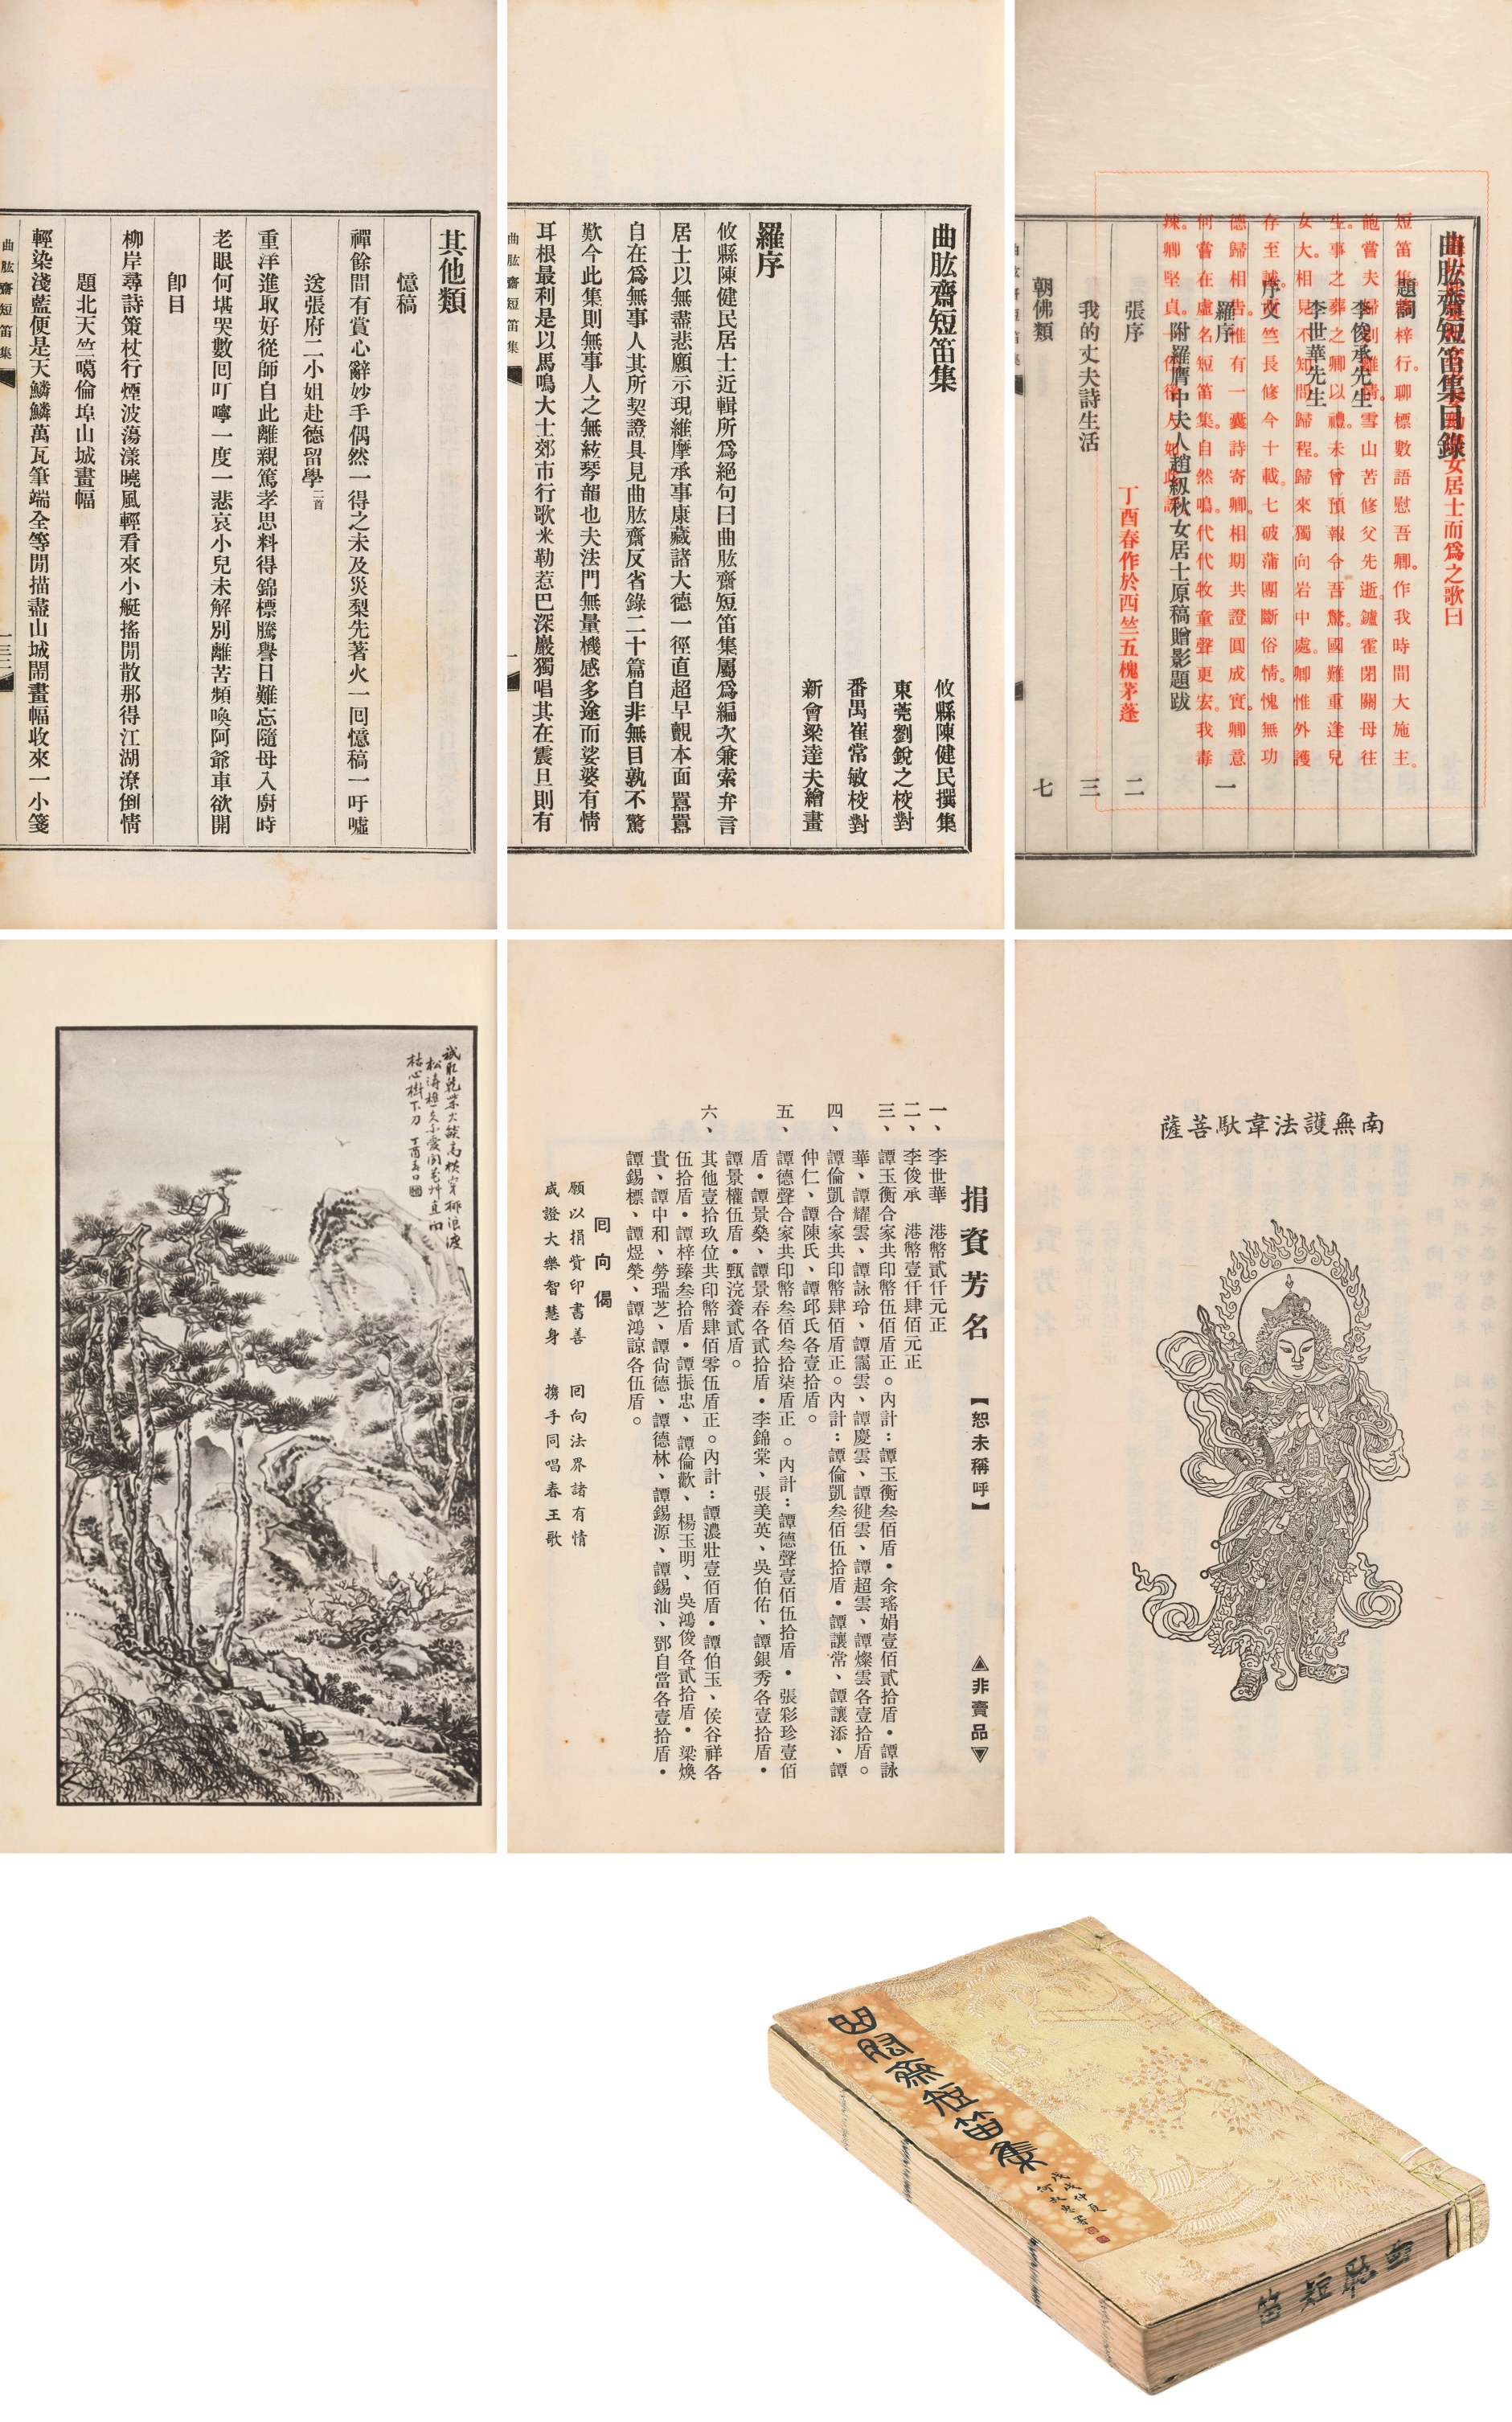 曲肱齋短笛集目錄
題詞
李俊承先生
李世華先生
序文
羅序 一
附羅膺中夫人趙級秋女居士原稿贈影題跋
張序 二
我的丈夫詩生活 三
朝佛類 七
女居士而爲之歌曰
短笛集壽梓行。聊標數語慰吾卿。作我時間大施主。
飽嘗夫婦別離情。雪山苦修父先逝。鑪霍閉關母往
生。事之葬之卿以禮。未曾預報令吾驚。國難重逢兒
女大。相見不知問歸程。歸來獨向岩中處。卿惟外護
存至誠。西竺長修今十載。七破蒲團斷俗情。愧無功
德歸相告。惟有一囊詩寄卿。相期共證圓成實。卿意
何嘗在虛名。短笛集。自然鳴。代代牧童聲更宏。我毒
辣。卿堅貞。
丁酉春作於西竺五槐茅蓬
曲肱齋短笛集
攸縣陳健民撰集
東莞劉銳之校對
番禺崔常敏校對
新會梁達夫繪畫
羅序
攸縣陳健民居士近輯所爲絕句曰曲肱齋短笛集屬爲編次兼索弁言
居士以無盡悲願示現維摩承事康藏諸大德一徑直超早覩本面囂囂
自在爲無事人其所契證具見曲肱齋反省錄二十篇自非無目孰不驚
歎今此集則無事人之無絃琴韻也夫法門無量機感多途而娑婆有情
耳根最利是以馬鳴大士郊市行歌米勒惹巴深巖獨唱其在震旦則有
曲肱齋短笛集
一
其他類
憶稿
禪餘間有賞心辭妙手偶然一得之未及災梨先著火一囘憶稿一吁噓
送張府二小姐赴德留學二首
重洋進取好從師自此離親篤孝思料得錦標騰譽日難忘隨母入廚時
老眼何堪哭數囘叮嚀一度一悲哀小兒未解別離苦頻喚阿爺車欲開
卽目
柳岸尋詩策杖行煙波蕩漾曉風輕看來小艇搖閒散那得江湖潦倒情
題北天竺噶倫埠山城畫幅
輕染淺藍便是天鱗鱗萬瓦筆端全等閒描盡山城鬧畫幅收來一小箋
曲肱齋短笛集
一三二
南無護法韋馱菩薩
捐資芳名 【恕未稱呼】 非賣品
一、李世華 港幣貳仟元正
二、李俊承 港幣壹仟肆佰元正
三、譚玉衡合家共印幣伍佰盾正。內計：譚玉衡叁佰盾・余瑤娟壹佰貳拾盾・譚詠
華、譚耀雲、譚詠玲、譚靄雲、譚慶雲、譚徤雲、譚超雲、譚燦雲各壹拾盾。
四、譚倫凱合家共印幣肆佰盾正。內計：譚倫凱叁佰伍拾盾・譚讓常、譚讓添、譚
仲仁、譚陳氏、譚邱氏各壹拾盾。
五、譚德聲合家共印幣叁佰叁拾柒盾正。內計：譚德聲壹佰伍拾盾・張彩珍壹佰
盾・譚景燊、譚景春各貳拾盾・李錦棠、張美英、吳伯佑、譚銀秀各壹拾盾・
譚景權伍盾・甄浣養貳盾。
六、其他壹拾玖位共印幣肆佰零伍盾正。內計：譚濃壯壹佰盾・譚伯玉、侯谷祥各
伍拾盾・譚梓臻叁拾盾・譚振忠、譚倫歡、楊玉明、吳鴻俊各貳拾盾・梁煥
貴、譚中和、勞瑞芝、譚尙德、譚德林、譚錫源、譚錫汕、鄧自當各壹拾盾・
譚錫標、譚煜榮、譚鴻諒各伍盾。
囘向偈
願以捐貲印書善 囘向法界諸有情
咸證大樂智慧身 携手同唱春王歌
丁酉春日
曲肱齋短笛集
戊戌仲夏
曲肱短笛